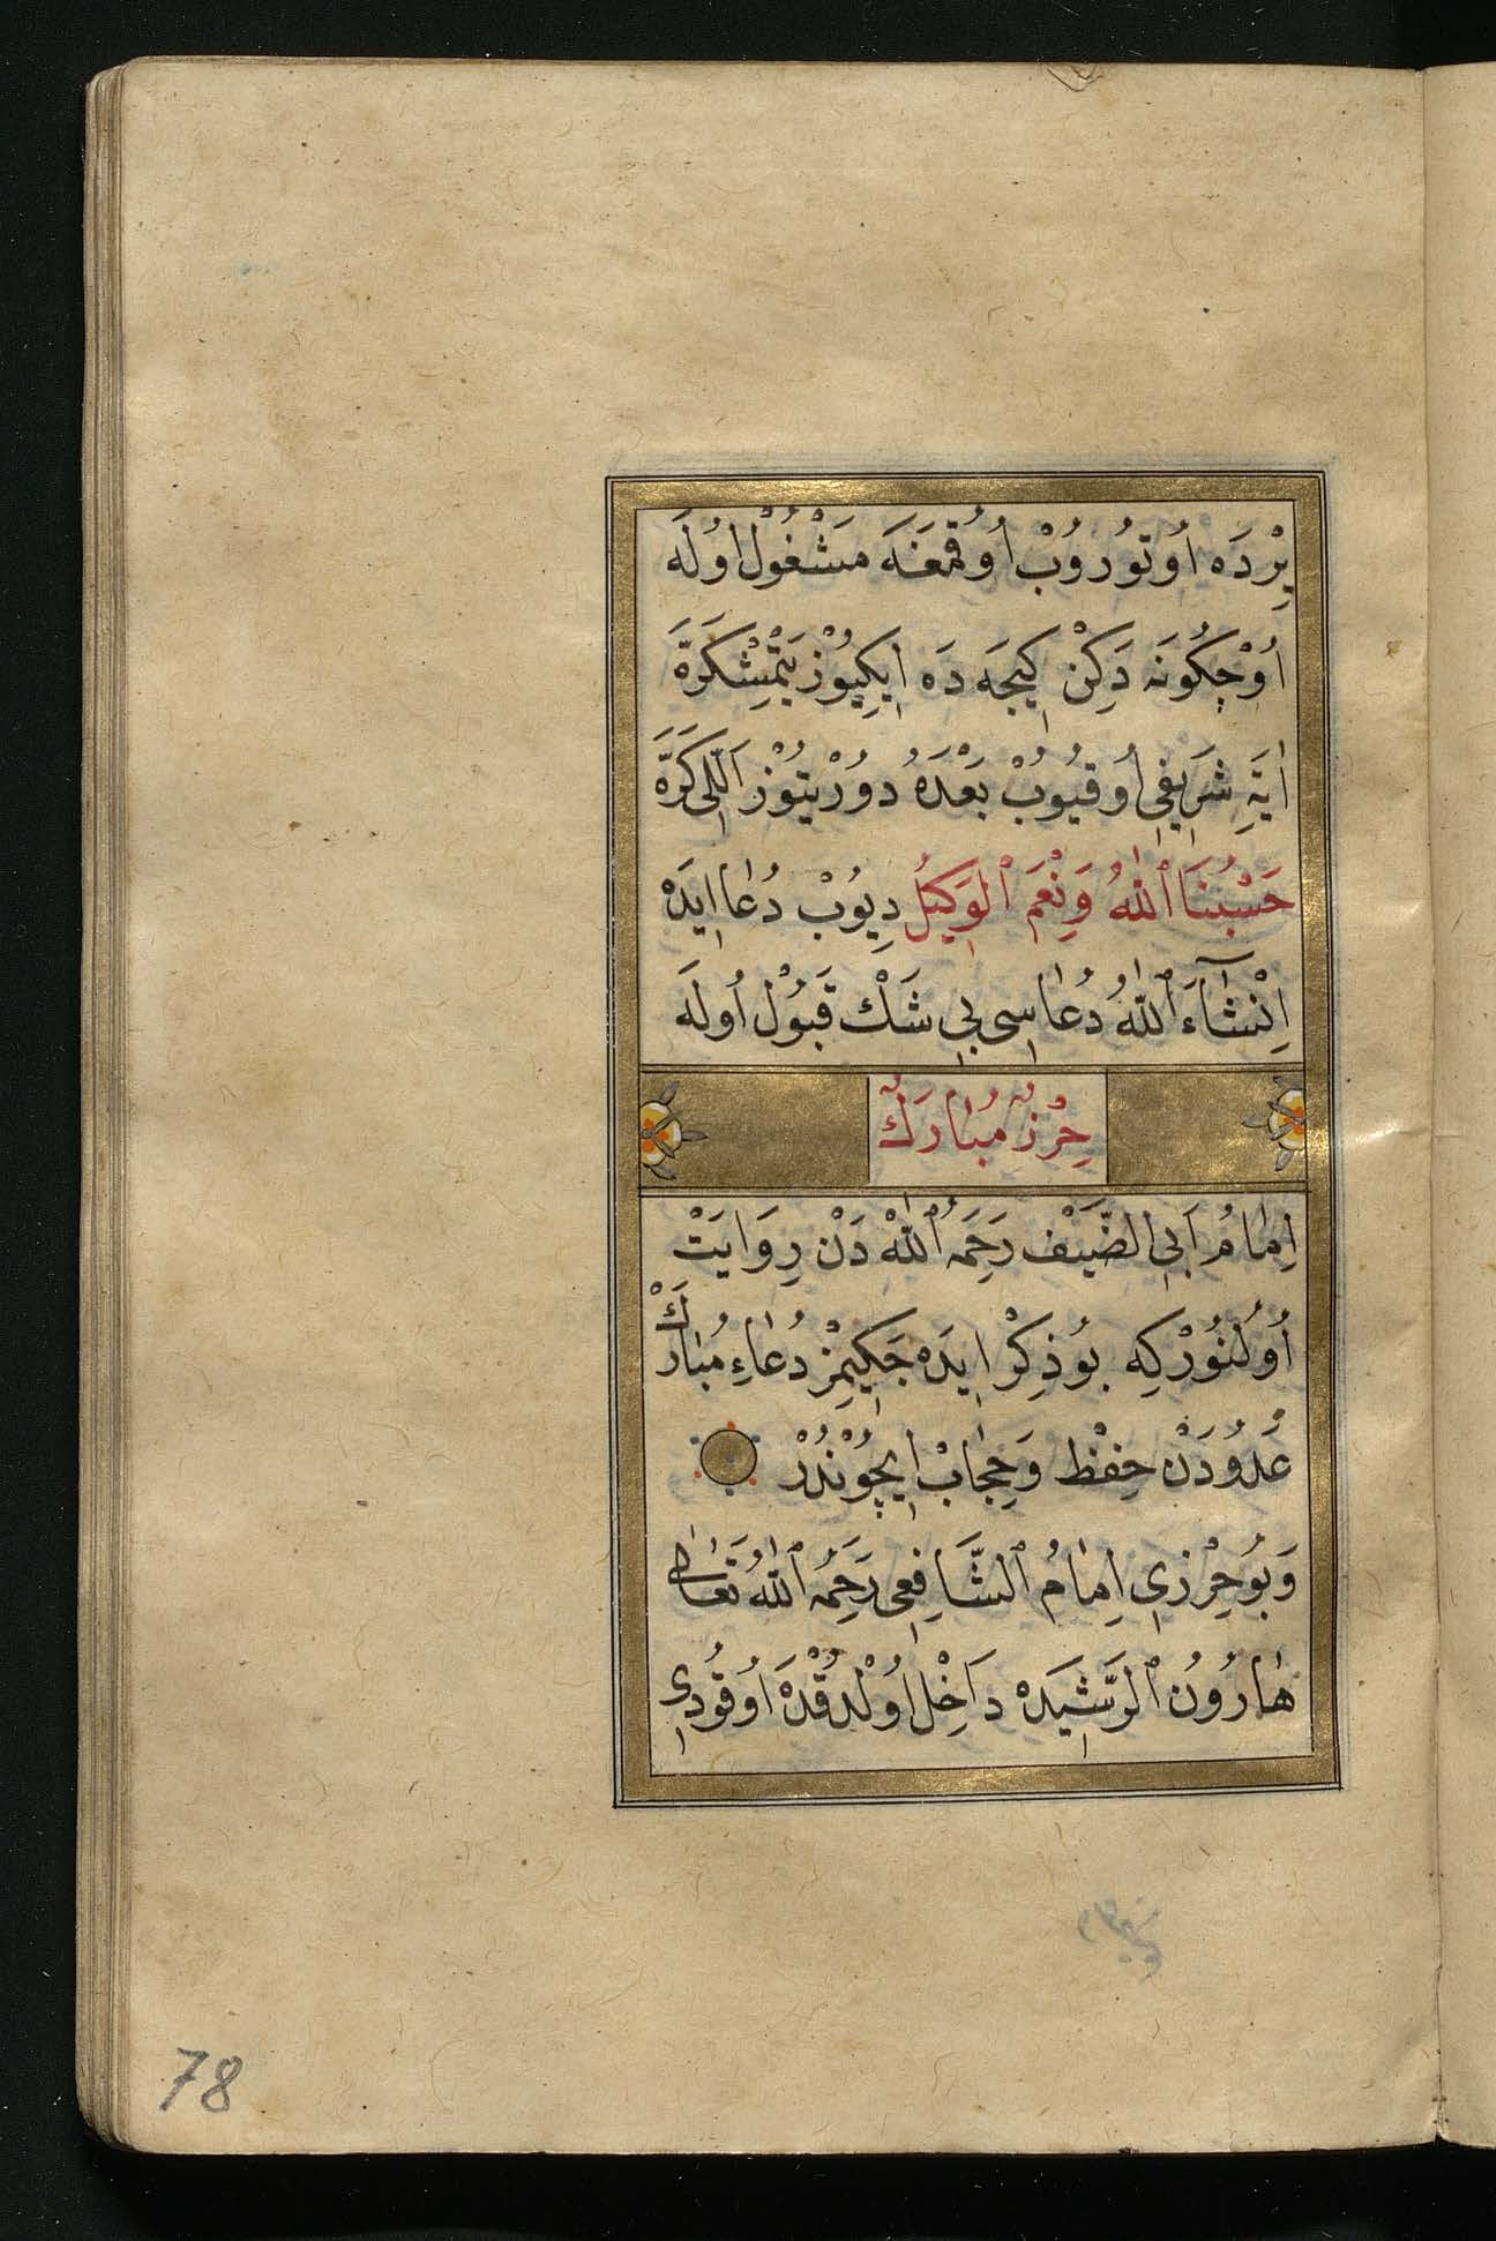 يِرْدَه اُوتُورُوبْ اُوقُمَغَه مَشْغُولْ اُولَه
اُوْچكُونَه دَكِنْ كِيجَه دَه اِيكِيوُزْ يَتْمِشْكَرَّه
اٰيَةِ شَرِيفِي اُوقُيُوبْ بَعْدَهُ دوُرْتيُوزْ اَللِّى كَرَّه
حَسْبُنَا ٱللّٰهُ وَنِعْمَ ٱلْوَكِيلُ دِيوُبْ دُعٰا اِيدَه
اِنْشَآءَ ٱللّٰهُ دُعٰاسِى بِي شَكْ قَبُولْ اُولَه
حِرْزِ مُبٰارَكْ
اِمٰامُ اَبِي الضَّيْف رَحِمَهُ ٱللّٰهْ دَنْ رِوَايَتْ
اُولُنُورْكِه بُوذِكِرْ اِيدَه جَكِيمِزْ دُعٰاءِ مُبٰارَكْ
عَدُودَنْ حِفْظ وَحِجٰابْ اِيچُونْدُرْ
وَبُوحِرْزِي اِمٰامُ ٱلشَّافِعِى رَحِمَهُ ٱللّٰهُ تَعَالٰى
هٰارُونُ ٱلرَّشِيدَه دَاخِلْ اُولْدُقْدَه اُوقُودِى
78